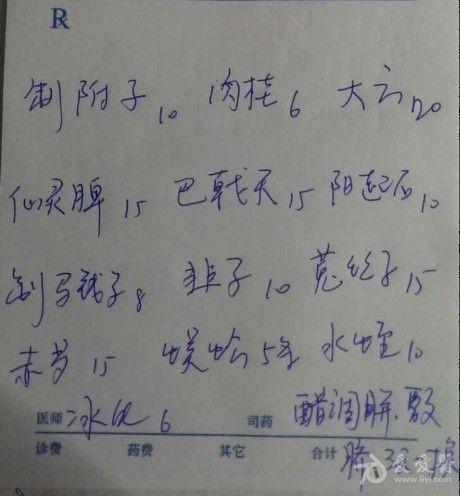 R
制附子10 肉桂6 大云20
仙灵脾15 巴戟天15 阳起石10
制马钱子8 韭子10 菟丝子15
赤芍15 蜈蚣5条 水蛭10
医师 冰片6 司药 醋调 敷
诊费 药费 其它 合计
爱爱医
www.iiyi.com